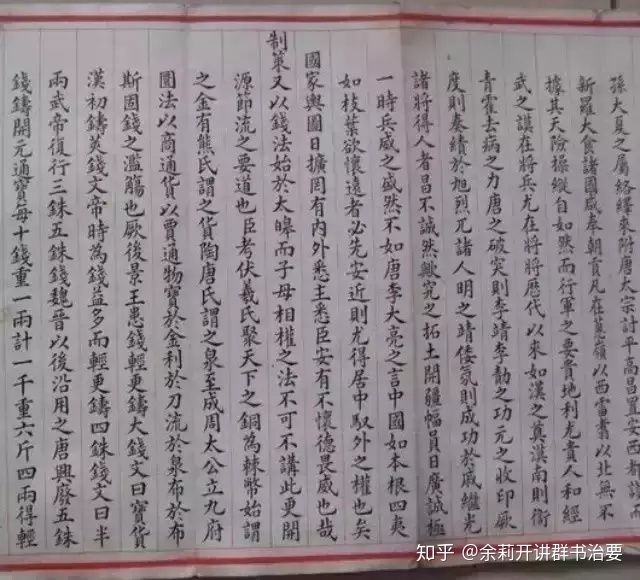 孫大夏之屬絡繹來附唐太宗討平高昌置安西都護而
新羅大食諸國咸奉朝貢凡在蔥嶺以西雷書以北無不
據其天險操縱自如然而行軍之要貴地利尤貴人和經
武之謨在將兵尤在將將歷代以來如漢之奠漠南則衛
青霍去病之力唐之破突則李靖李勣之功元之收印厥
度則奏績於旭烈兀諸人明之靖倭氛則成功於戚繼光
諸將得人者昌不誠然歟究之拓土開疆幅員日廣誠極
一時兵威之盛然不如唐李大亮之言中國如本根四夷
如枝葉欲懷遠者必先安近則尤得居中馭外之權也矣
國家輿圖日擴罔有內外悉主悉臣安有不懷德畏威也哉
制策又以錢法始於太皞而子母相權之法不可不講此更開
源節流之要道也臣考伏羲氏聚天下之銅為棘幣始謂
之金有熊氏謂之貨陶唐氏謂之泉至成周太公立九府
圜法以商通貨以賈通物寶於金利於刀流於泉布於布
斯固錢之濫觴也厥後景王患錢輕更鑄大錢文曰寶貨
漢初鑄莢錢文帝時為錢益多而輕更鑄四銖錢文曰半
兩武帝復行三銖五銖錢魏晉以後沿用之唐興廢五銖
錢鑄開元通寶每十錢重一兩計一千重六斤四兩得輕
知乎 @余莉开讲群书治要